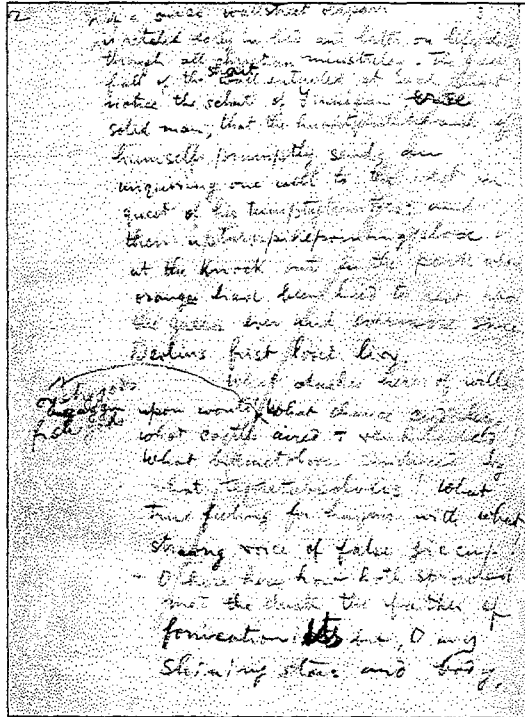 2
of a once wallstreet oldparr
is retaled early in bed and later on life down
through all christian minstrelsy. The great
fall of the wall entailed at such short
notice the schute of Finnegan erse
solid man, that the humptyhillhead of
humself promptly sends an
inquiring one well to the west in
quest of his tumptytumtoes: and
their upturnpikepointandplace is
at the knock out in the park where
oranges have been laid to rest upon
the green ever and evermore since
Devlins first loved livy.
What clashes here of wills
oystrygods
gaggin
fishygods
upon wonts! What chance
what castles aired & ventilated!
What bidimetoloves sinduced by
what tegotetabsolvers! What
true feeling for hayair with what
strawng voice of false jiccup!
O here here how hoth sprowled
met the dusk the father of
fornication, O my
shining stars and body,